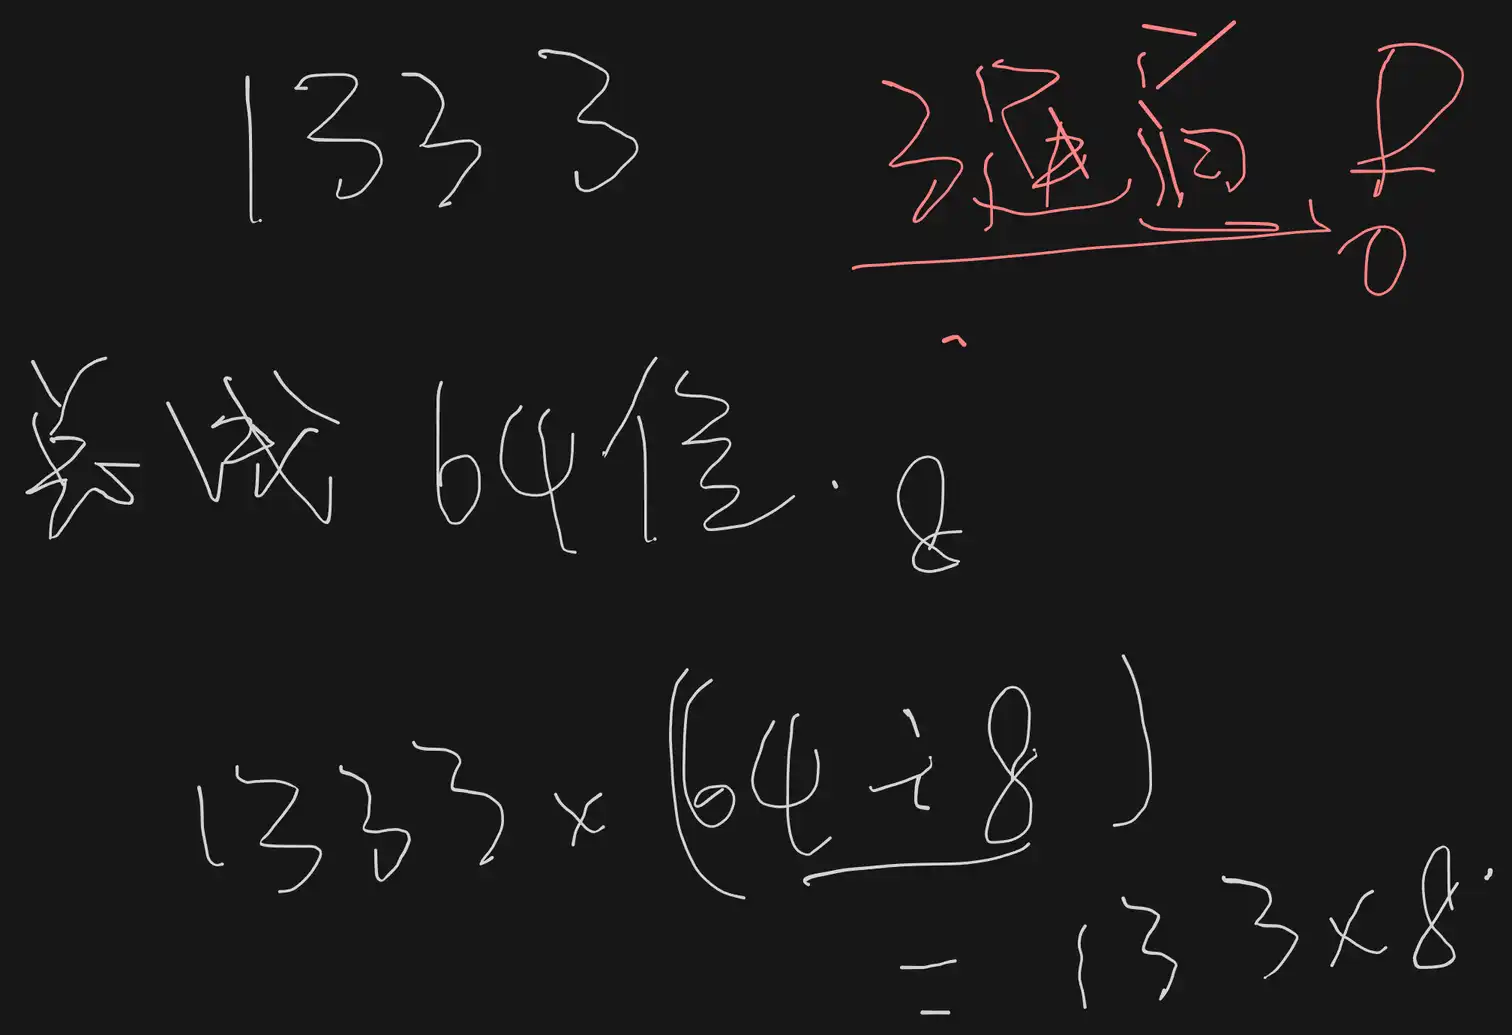 1333
3通道 P
0
美减 64倍. 8
1333 × (64 ÷ 8)
= 133 × 8.